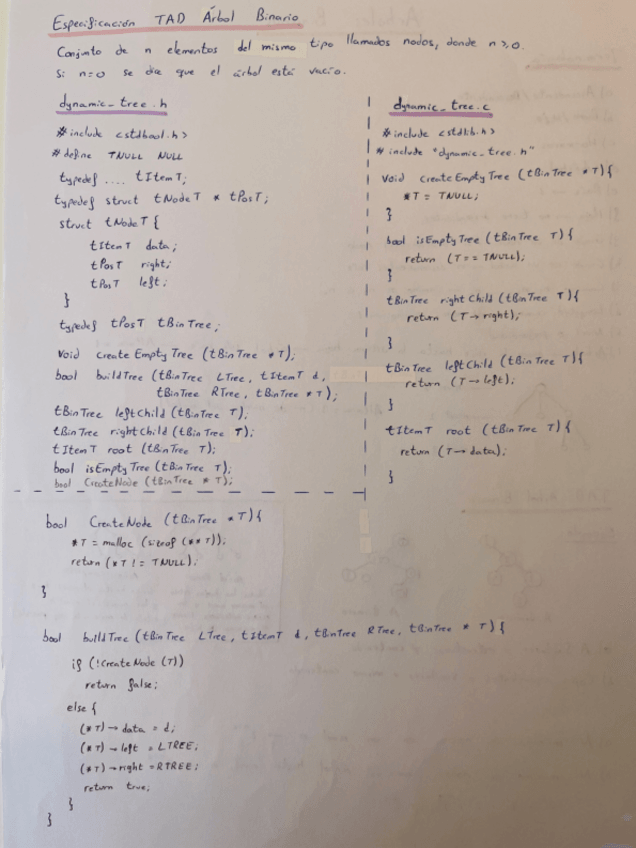 Especificación TAD Árbol Binario
Conjunto de n elementos del mismo tipo llamados nodos, donde n ≥ 0.
Si n=0 se dice que el árbol está vacío.
dynamic_tree.h
# include <stdbool.h>
# define TNULL NULL
typedef .... tItemT;
typedef struct tNodeT * tPosT;
struct tNodeT {
tItemT data;
tPosT right;
tPosT left;
}
typedef tPosT tBinTree;
void createEmptyTree (tBinTree *T);
bool buildTree (tBinTree LTree, tItemT d,
tBinTree RTree, tBinTree *T);
tBinTree leftChild (tBinTree T);
tBinTree rightChild (tBinTree T);
tItemT root (tBinTree T);
bool isEmptyTree (tBinTree T);
bool CreateNode (tBinTree *T);
dynamic_tree.c
# include <stdlib.h>
# include "dynamic_tree.h"
void createEmptyTree (tBinTree *T){
*T = TNULL;
}
bool isEmptyTree (tBinTree T){
return (T == TNULL);
}
tBinTree rightChild (tBinTree T){
return (T→right);
}
tBinTree leftChild (tBinTree T){
return (T→left);
}
tItemT root (tBinTree T){
return (T→data);
}
bool CreateNode (tBinTree *T){
*T = malloc (sizeof (**T));
return (*T != TNULL);
}
bool buildTree (tBinTree LTree, tItemT d, tBinTree RTree, tBinTree *T){
if (!CreateNode (T))
return false;
else {
(*T)→data = d;
(*T)→left = LTREE;
(*T)→right = RTREE;
return true;
}
}